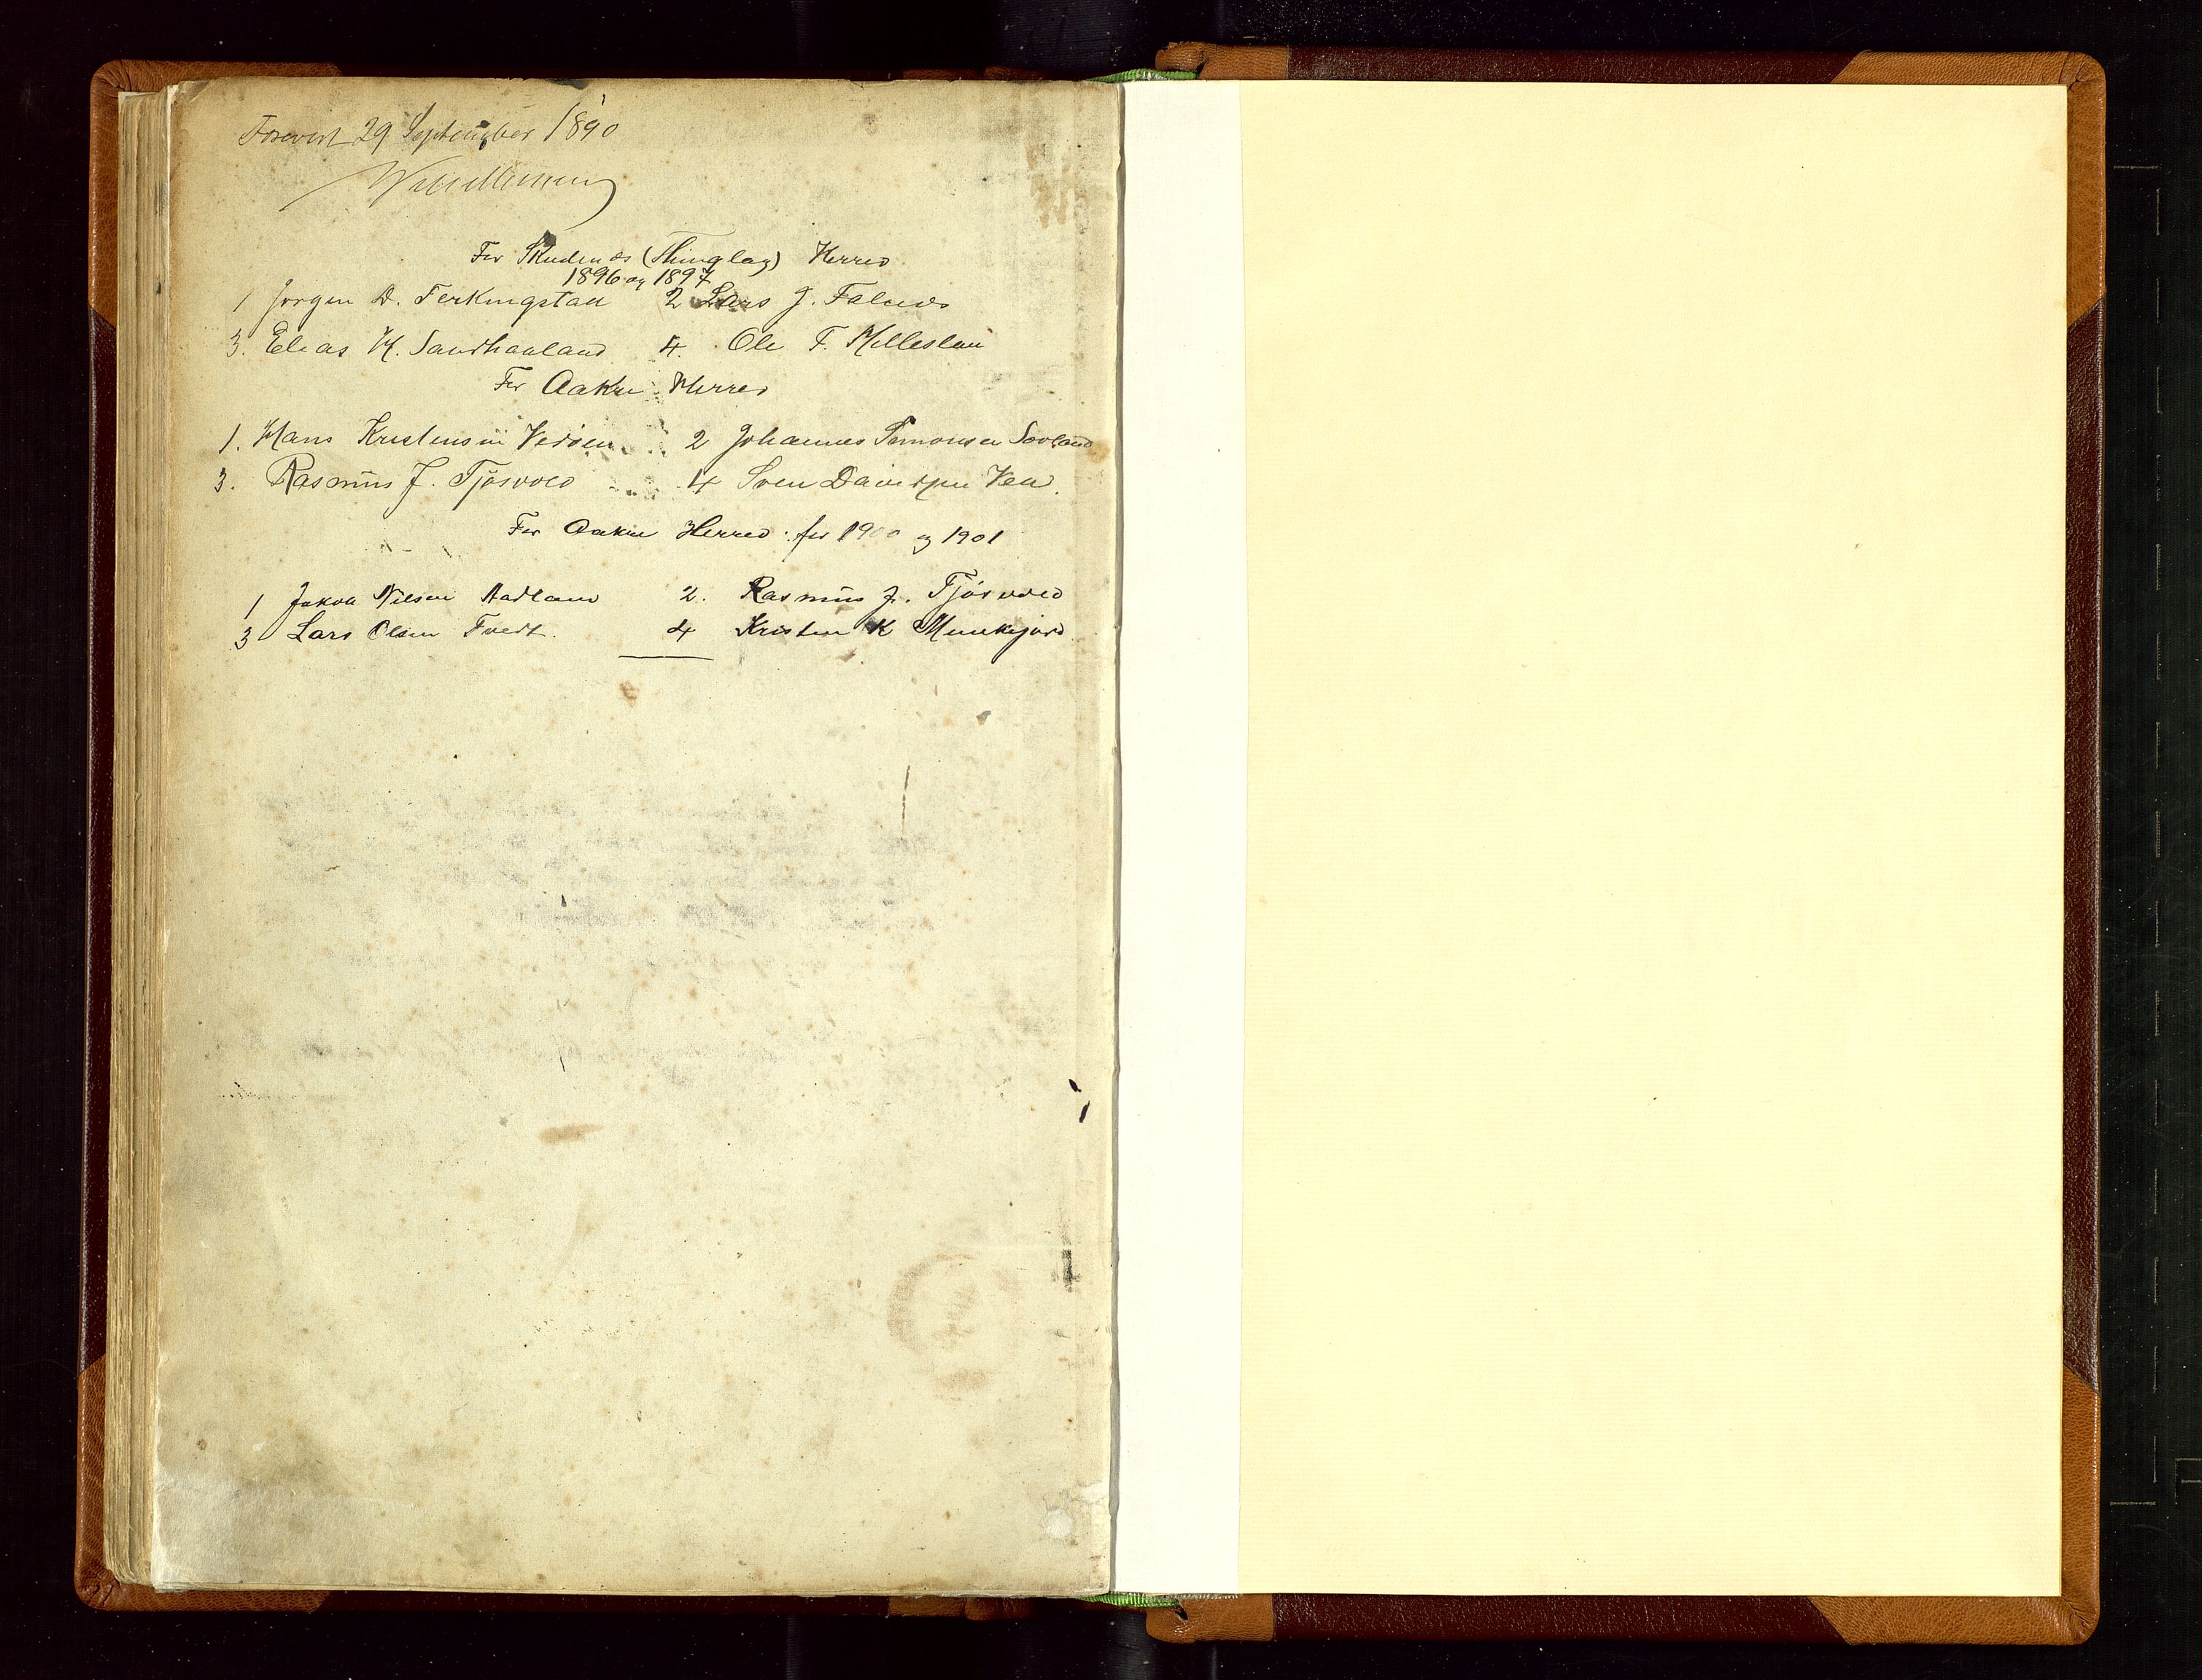 Forevist 29 September 1890
For Skudenæs (Thinglag) Herred
1896 og 1897
1 Jørgen D. Ferkingstad 2 Lars J. Falnæs
3. Elias K. Sandhaaland 4. Ole F. Milleslau
For Aakre Herred
1. Hans Kristensen Vedøen 2 Johannes Simonsen Sovland
3. Rasmus J. Tjøsvold 4 Sven Davidsen Vea.
For Aakre Herred for 1900 og 1901
1 Jakob Nilsen Aadland 2. Rasmus J. Tjøsvold
3 Lars Olsen Tvedt. 4 Kristen K Munkejord